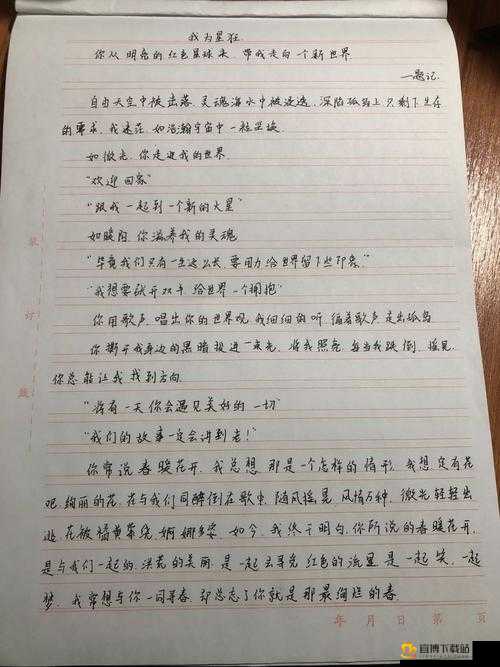 我为星狂
你从明亮的红色星球来,带我走向一个新世界
—题记
自由天空中被击落,灵魂海水中被浸透,深陷孤岛上只剩下生存
的要求,我迷茫,如浩瀚宇宙中一粒尘埃
如微光,你走进我的世界
“欢迎回家”
“跟我一起到一个新的火星”
如暖阳,你滋养我的灵魂
“毕竟我们只有一生这么长,要用力给世界留下些印象”
“我想要张开双手,给世界一个拥抱”
你用歌声,唱出你的世界观,我细细的听,循着歌声走出孤岛
你撕开我身边的黑暗,投进一束光,将我照亮,每当我跌倒,摇晃,
你总能让我找到方向
“将有一天你会遇见美好的一切”
“我们的故事一定会讲到老!”
你常说春暖花开,我总想,那是一个怎样的情形,我想,定有花
吧,绚丽的花,花与我们同醉倒在歌中,随风摇晃,风情万种,微光轻轻出
逃,花被橘黄萦绕,婀娜多姿,如今,我终于明白,你所说的春暖花开,
是与我们一起的,洪荒的美丽,是一起去寻觅,红色的流星,是一起笑,一起
梦,我常想与你一同寻春,却总忘了你就是那最绚烂的春
装
订
线
年 月 日 第 页
宜博下载站